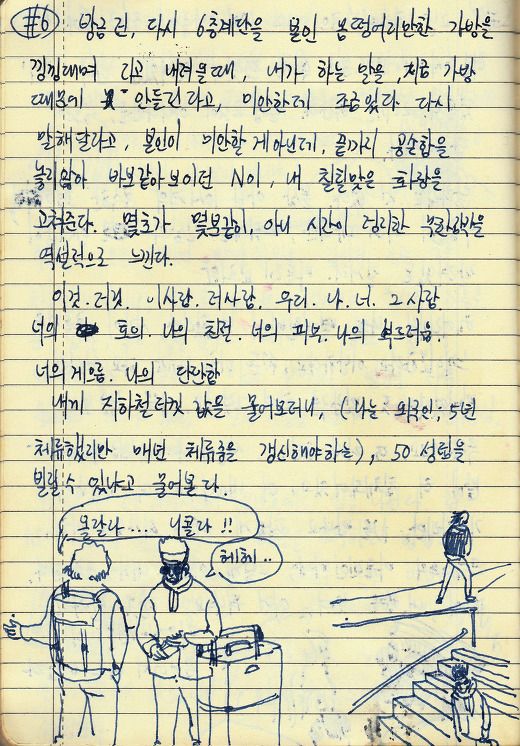 #6 방금 전, 다시 6층계단을 본인 몸떵어리만한 가방을
낑낑대며 라고 내려올때, 내가 하는 말을, 지금 가방
때문에 안들린다고, 미안한데 조금있다 다시
말해달라고, 본인이 미안할게아닌데, 끝까지 공손함을
놓지않아 바보같아보이던 N이, 내 칠칠맞은 화장을
고쳐준다. 몇초가 몇분같이, 아니 시간이 정리한 속을
역설적으로 느낀다.
이것. 저것. 이사람. 저사람. 우리. 나. 너. 그사람.
너의 토의. 나의 친절. 너의 피부. 나의 부드러움.
너의게으름. 나의 단단함
내게 지하철티켓 값을 물어보더니, (나는 외국인; 5년
체류했지만 매년 체류증을 갱신해야하는), 50 성팀을
빌릴수 있냐고 물어본다.
몰랄라 .... 니콜라 !!
헤헤..